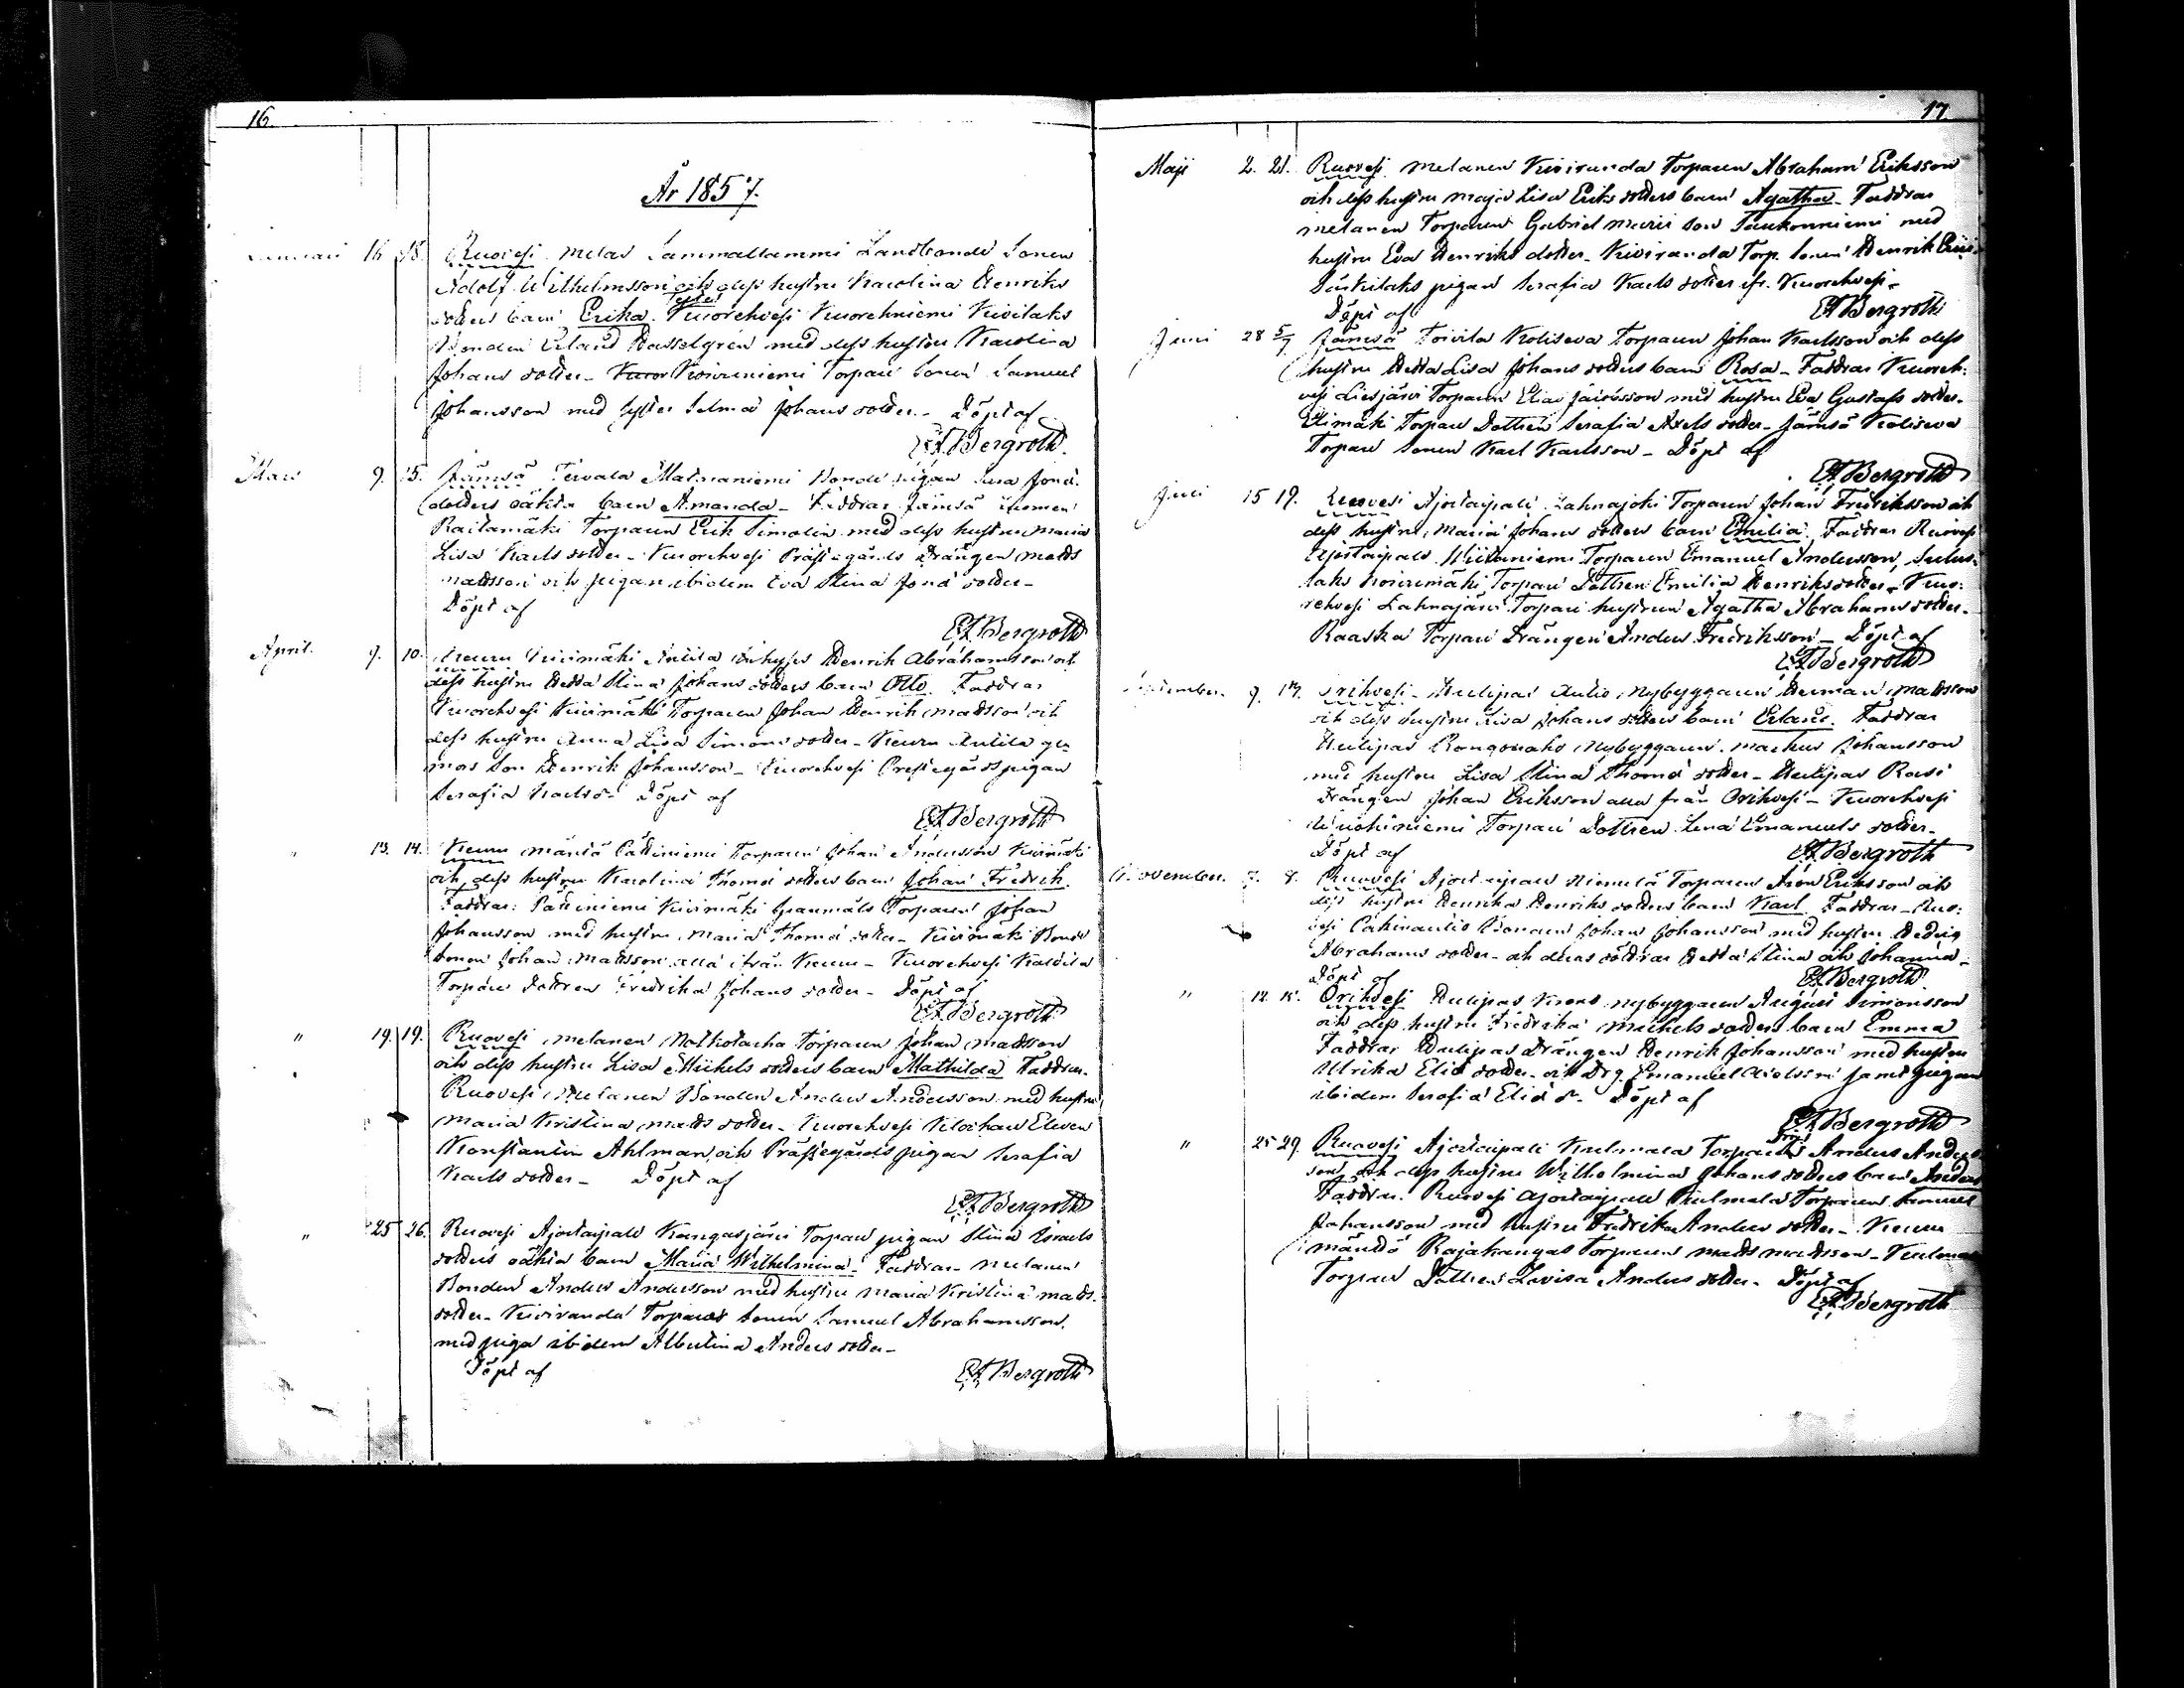 16.
År 1857.
Januari 16 18. Ruovesi Melas Sammallammi Landbonde Sonen
Adolf Wilhelmsson och dess hustru Karolina Henriks
dotters barn Erika. Kuorehvesi Kuorehniemi Kivilaks
Bonden Erland Hasselgren med dess hustru Karolina
Johans dotter - Koivuniemi Torpare Sonen Samuel
Johansson med syster Selma Johans dotter - Döpt af
EABergroth.
Mars 9. 15. Jämsä Tervala Matnaniemi Bonde pigan Lisa Jona
dotters oäkta barn Amanda - Faddrar Jämsä
Raitamäki Torparen Erik Simolin med dess hustru Maria
Lisa Karls dotter - Kuorehvesi Prästegårds Drängen Matts
Mattsson och pigan ibidem Eva Stina Jona dotter -
Döpt af
EABergroth
April. 9. 10. Keuru Kivimäki Anttila Inhyses Henrik Abrahamsson och
dess hustru Hedda Stina Johans dotters barn Otto. Faddrar
Kuorehvesi Kivimäki Torparen Johan Henrik Mattsson och
dess hustru Anna Lisa Simons dotter - Keuru Anttila
mos Son Henrik Johansson - Kuorehvesi Prestegårds pigan
Serafia Karls d. Döpt af
EABergroth
" 13. 14. Keuru Mänttä Päiliniemi Torparen Johan Andersson Kivimäki
och dess hustru Karolina Thomæ dotters barn Johan Fredrik.
Faddrar: Kivimäki Torparen Johan
Johansson med hustru Maria Thomæ dotter - Kivimäki Bonde
Sonen Johan Mattsson alla ifrån Keuru - Kuorehvesi
Torpare Dottren Fredrika Johans dotter - Döpt af
EABergroth
" 19. 19. Ruovesi Melanen Torparen Johan Mattsson
och dess hustru Lisa Michels dotters barn Mathilda Faddrar.
Ruovesi Melanen Bonden Anders Andersson med hustru
Maria Kristina Matts dotter - Kuorehvesi Klockare Eleven
Konstantin Ahlman och Prästegårds pigan Serafia
Karls dotter - Döpt af
EABergroth
" 25 26. Ruovesi Ajostaipale Kangasjärvi Torpare pigan Stina Israels
dotters oäkta barn Maria Wilhelmina - Faddrar - Melanen
Bonden Anders Andersson med hustru Maria Kristina Matts
dotter - Kiviranda Torpares Sonen Samuel Abrahamsson,
med piga ibidem Albertina Anders dotter -
Döpt af EABergroth
17.
Maji 2. 21. Ruovesi Melanen Kiviranda Torparen Abraham Eriksson
och dess hustru Maja Lisa Eriks dotters barn Agatha - Faddrar
Melanen Torparen Gabriel son Taukonniemi med
hustru Eva Henriks dotter - Kiviranda Torp. Sonen Henrik
Särkilaks pigan Serafia Karls dotter fr. Kuorehvesi -
Döpt af EABergroth
Juni 28 5/7 Jämsä Toivila Koliseva Torparen Johan Karlsson och dess
hustru Hedda Lisa Johans dotters barn Rosa - Faddrar Kuoreh:
vesi Liesjärvi Torparen Elias med hustru Eva Gustafs dotter -
Elimäki Torpare Dottren Serafia Axels dotter - Jämsä Koliseva
Torpare Sonen Karl Karlsson - Döpt af
EABergroth
Juli 15 19. Ruovesi Ajostaipale Lahnajoki Torparen Johan Fredriksson och
dess hustru Maria Johans dotters barn Emilia. Faddrar Ruovesi
Ajostaipale Niitaniemi Torparen Emanuel Andersson,
laks Koivumäki Torpare Dottren Emilia Henriksdotter - Kuo:
rehvesi Lahnajärvi Torpare hustrun Agatha Abrahams dotter -
Raaska Torpare Drängen Anders Fredriksson - Döpt af
EABergroth
September. 9. 17. Orihvesi - Hulipas Aulio Nybyggaren Herman Mattsson
och dess hustru Lisa Johans dotters barn Erland. Faddrar
Hulipas Rongonaho Nybyggaren Markus Johansson
med hustru Lisa Stina Thomæ dotter - Hulipas Rasi
Drängen Johan Eriksson alla från Orihvesi - Kuorehvesi
Torpare Dottren Lena Emanuels dotter -
Döpt af EABergroth
November. 7. 8. Ruovesi Ajostaipale Niemelä Torparen Aron Eriksson och
dess hustru Henrika Henriks dotters barn Karl. Faddrar - Ruo:
vesi Bonden Johan Johansson med hustru Hedvig
Abrahams dotter - och deras döttrar Hedda Stina och Johanna -
Döpt af EABergroth
" 12. 15. Orihvesi Hulipas Nybyggaren August Simonsson
och dess hustru Fredrika Michels dotters barn Emma
Faddrar Hulipas Drängen Henrik Johansson med hustru
Ulrika Eliæ dotter - och Drg. Emanuel samt pigan
ibidem Serafia Eliæ d. Döpt af
EABergroth
" 25 29. Ruovesi Ajostaipale Kulmala Torparen Anders Anders
son och dess hustru Wilhelmina Johans dotters barn Anders
Faddrar. Ruovesi Ajostaipale Kulmala Torparen Samuel
Johansson med hustru Fredrika Anders dotter - Keuru
Mänttä Rajakangas Torparen Matts Mattsson - Kulmala
Torpare Dottren Lovisa Anders dotter - Döpt af
EABergroth